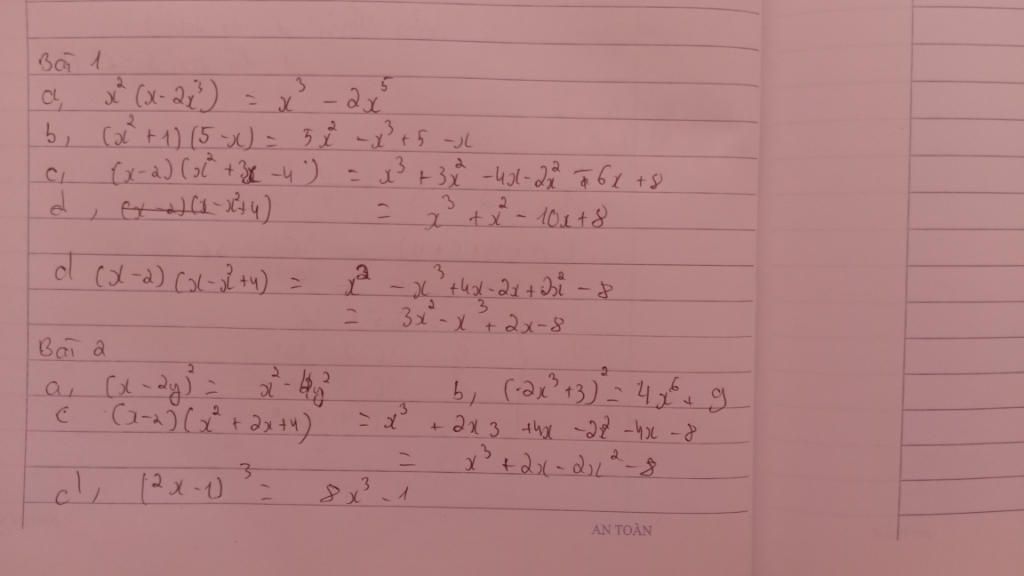 Bài 1
a, x²(x-2x³) = x³ - 2x⁵
b, (x²+1)(5-x) = 5x² - x³ + 5 - x
c, (x-2)(x²+3x-4) = x³ + 3x² - 4x - 2x² - 6x + 8
d, (x-2)(x-x²+4) = x³ + x² - 10x + 8
d (x-2)(x-x²+4) = x² - x³ + 4x - 2x + 2x² - 8
= 3x² - x³ + 2x - 8
Bài 2
a, (x-2y)² = x² - 4y² b, (-2x³+3)² = 4x⁶ + 9
c (x-2)(x²+2x+4) = x³ + 2x3 + 4x - 2x² - 4x - 8
= x³ + 2x - 2x² - 8
d, (2x-1)³ = 8x³ - 1
AN TOÀN